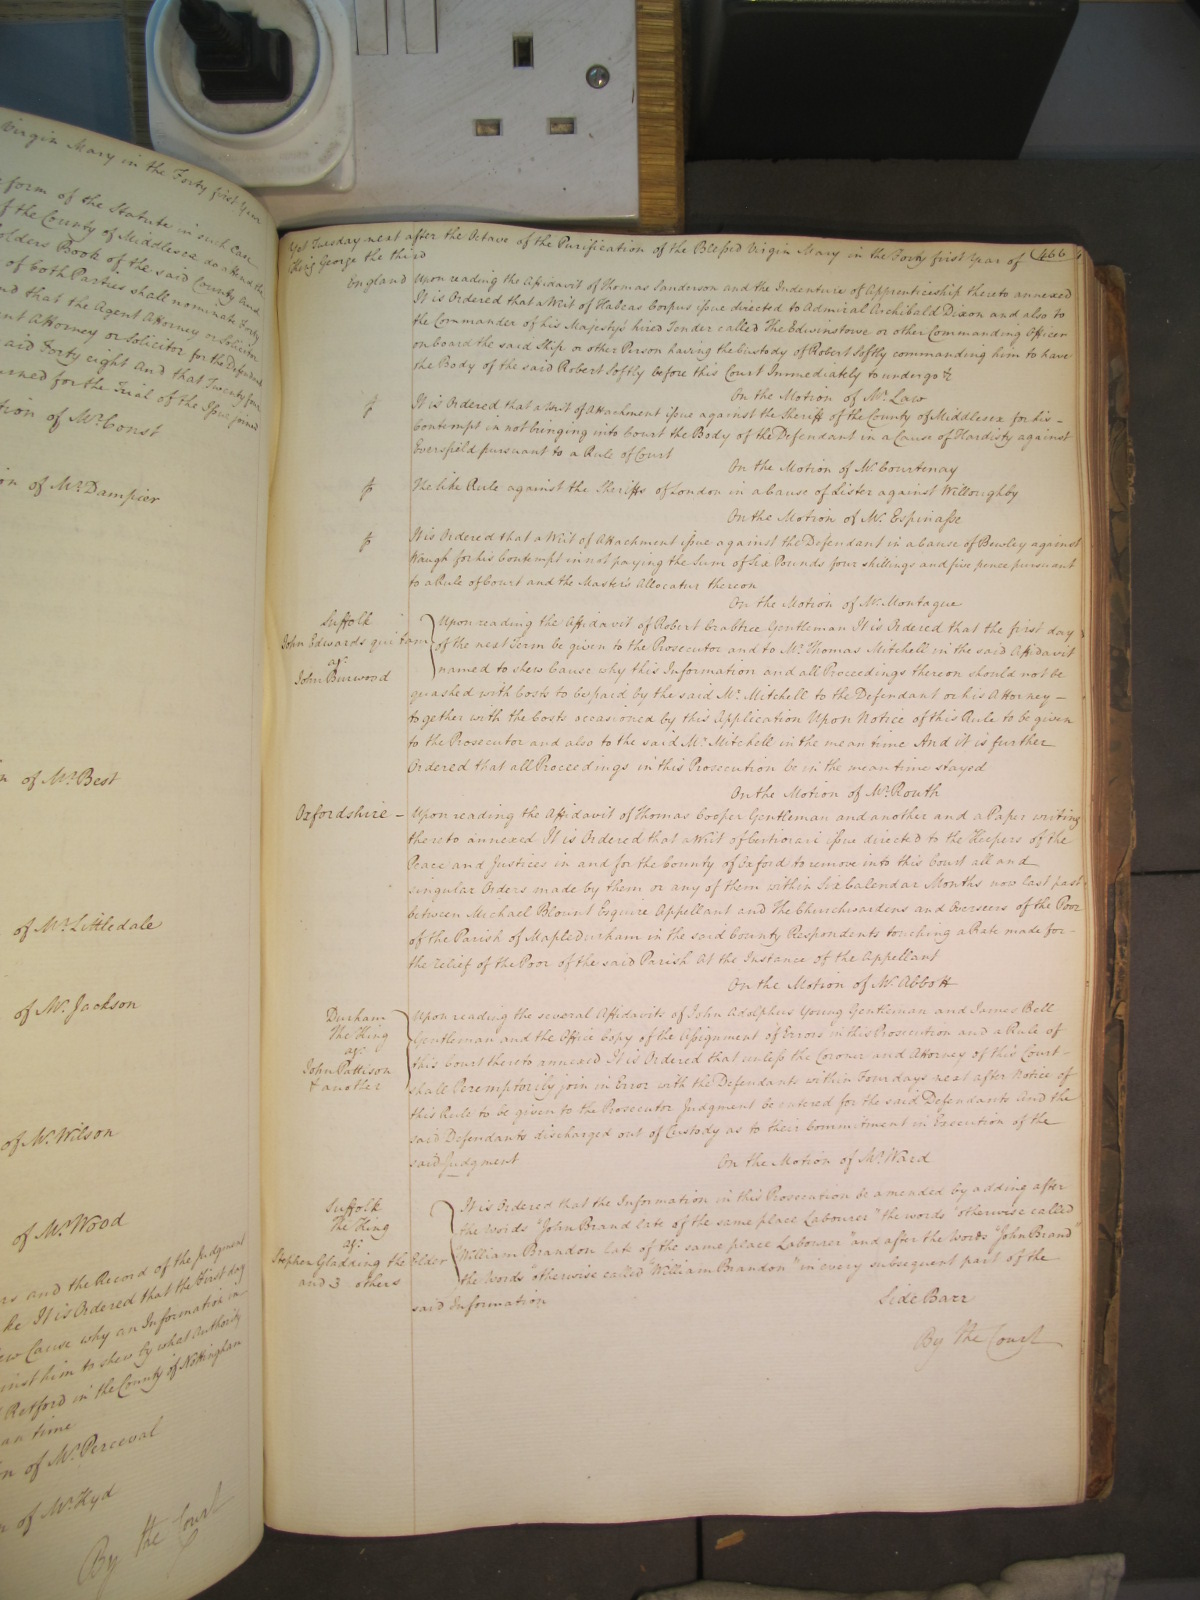 Virgin Mary in the Forty first Year
form of the Statute in such Case
of the County of Middlesex do attend the
holders Book of the said County And
of both Parties shall nominate Forty
and that the Agent Attorney or Solicitor
Attorney or Solicitor for the Defendant
said Forty eight And that Twenty four
for the Trial of the Issue joined
of Mr. Const
on of Mr. Dampier
of Mr. Best
of Mr. Littledale
of Mr. Jackson
of Mr. Wilson
of Mr. Wood
and the Record of the Judgment
It is Ordered that the First day
Cause why an Information in
against him to shew by what Authority
Retford in the County of Nottingham
time
of Mr. Perceval
of Mr. Kyd
By the Court
Yet Tuesday next after the Octave of the Purification of the Blessed Virgin Mary in the Forty first Year of 466
King George the third
England Upon reading the Affidavit of Thomas Sanderson and the Indenture of Apprenticeship thereto annexed
It is Ordered that a Writ of Habeas Corpus issue directed to Admiral Archibald Dixon and also to
the Commander of his Majestys hired Tender called The Edwinstowe or other Commanding Officer
on board the said Ship or other Person having the Custody of Robert Softly commanding him to have
the Body of the said Robert Softly before this Court Immediately to undergo &c
On the Motion of Mr. Law
It is Ordered that a Writ of Attachment issue against the Sheriff of the County of Middlesex for his
Contempt in not bringing into Court the Body of the Defendant in a Cause of Hardisty against
Eversfield pursuant to a Rule of Court
On the Motion of Mr. Courtenay
The like Rule against the Sheriffs of London in a Cause of Lister against Willoughby
On the Motion of Mr. Espinasse
It is Ordered that a Writ of Attachment issue against the Defendant in a Cause of Bewley against
Waugh for his Contempt in not paying the Sum of Six Pounds four shillings and five pence pursuant
to a Rule of Court and the Master's Allocatur thereon
On the Motion of Mr. Montague
Suffolk
John Edwards qui tam
agt.
John Burwood
Upon reading the Affidavit of Robert Crabtree Gentleman It is Ordered that the first day
of the next Term be given to the Prosecutor and to Mr. Thomas Mitchell in the said Affidavit
named to shew Cause why this Information and all Proceedings thereon should not be
quashed with Costs to be paid by the said Mr. Mitchell to the Defendant or his Attorney
together with the Costs occasioned by this Application Upon Notice of this Rule to be given
to the Prosecutor and also to the said Mr. Mitchell in the mean time And it is further
Ordered that all Proceedings in this Prosecution be in the mean time stayed
On the Motion of Mr. Routh
Oxfordshire – Upon reading the Affidavit of Thomas Cooper Gentleman and another and a Paper writing
thereto annexed It is Ordered that a Writ of Certiorari issue directed to the Keepers of the
Peace and Justices in and for the County of Oxford to remove into this Court all and
singular Orders made by them or any of them within Six Calendar Months now last past
between Michael Blount Esquire Appellant and the Churchwardens and Overseers of the Poor
of the Parish of Mapledurham in the said County Respondents touching a Rate made for
the relief of the Poor of the said Parish At the Instance of the Appellant
On the Motion of Mr. Abbott
Durham
The King
agt.
John Pattison
& another
Upon reading the several Affidavits of John Adolphus Young Gentleman and James Bell
Gentleman and the Office Copy of the Assignment of Errors in this Prosecution and a Rule of
this Court thereto annexed It is Ordered that unless the Coroner and Attorney of this Court
shall Peremptorily join in Error with the Defendants within Four days next after Notice of
this Rule to be given to the Prosecutor Judgment be entered for the said Defendants And the
said Defendants discharged out of Custody as to their Commitment in Execution of the
said Judgment
On the Motion of Mr. Ward
Suffolk
The King
agt.
Stephen Gladding the Elder
and 3 others
It is Ordered that the Information in this Prosecution be amended by adding after
the words "John Brand late of the same place Labourer" the words "otherwise called
William Brandon late of the same place Labourer" and after the words "John Brand"
the Words "otherwise called "William Brandon" in every subsequent part of the
said Information
Side Barr
By the Court